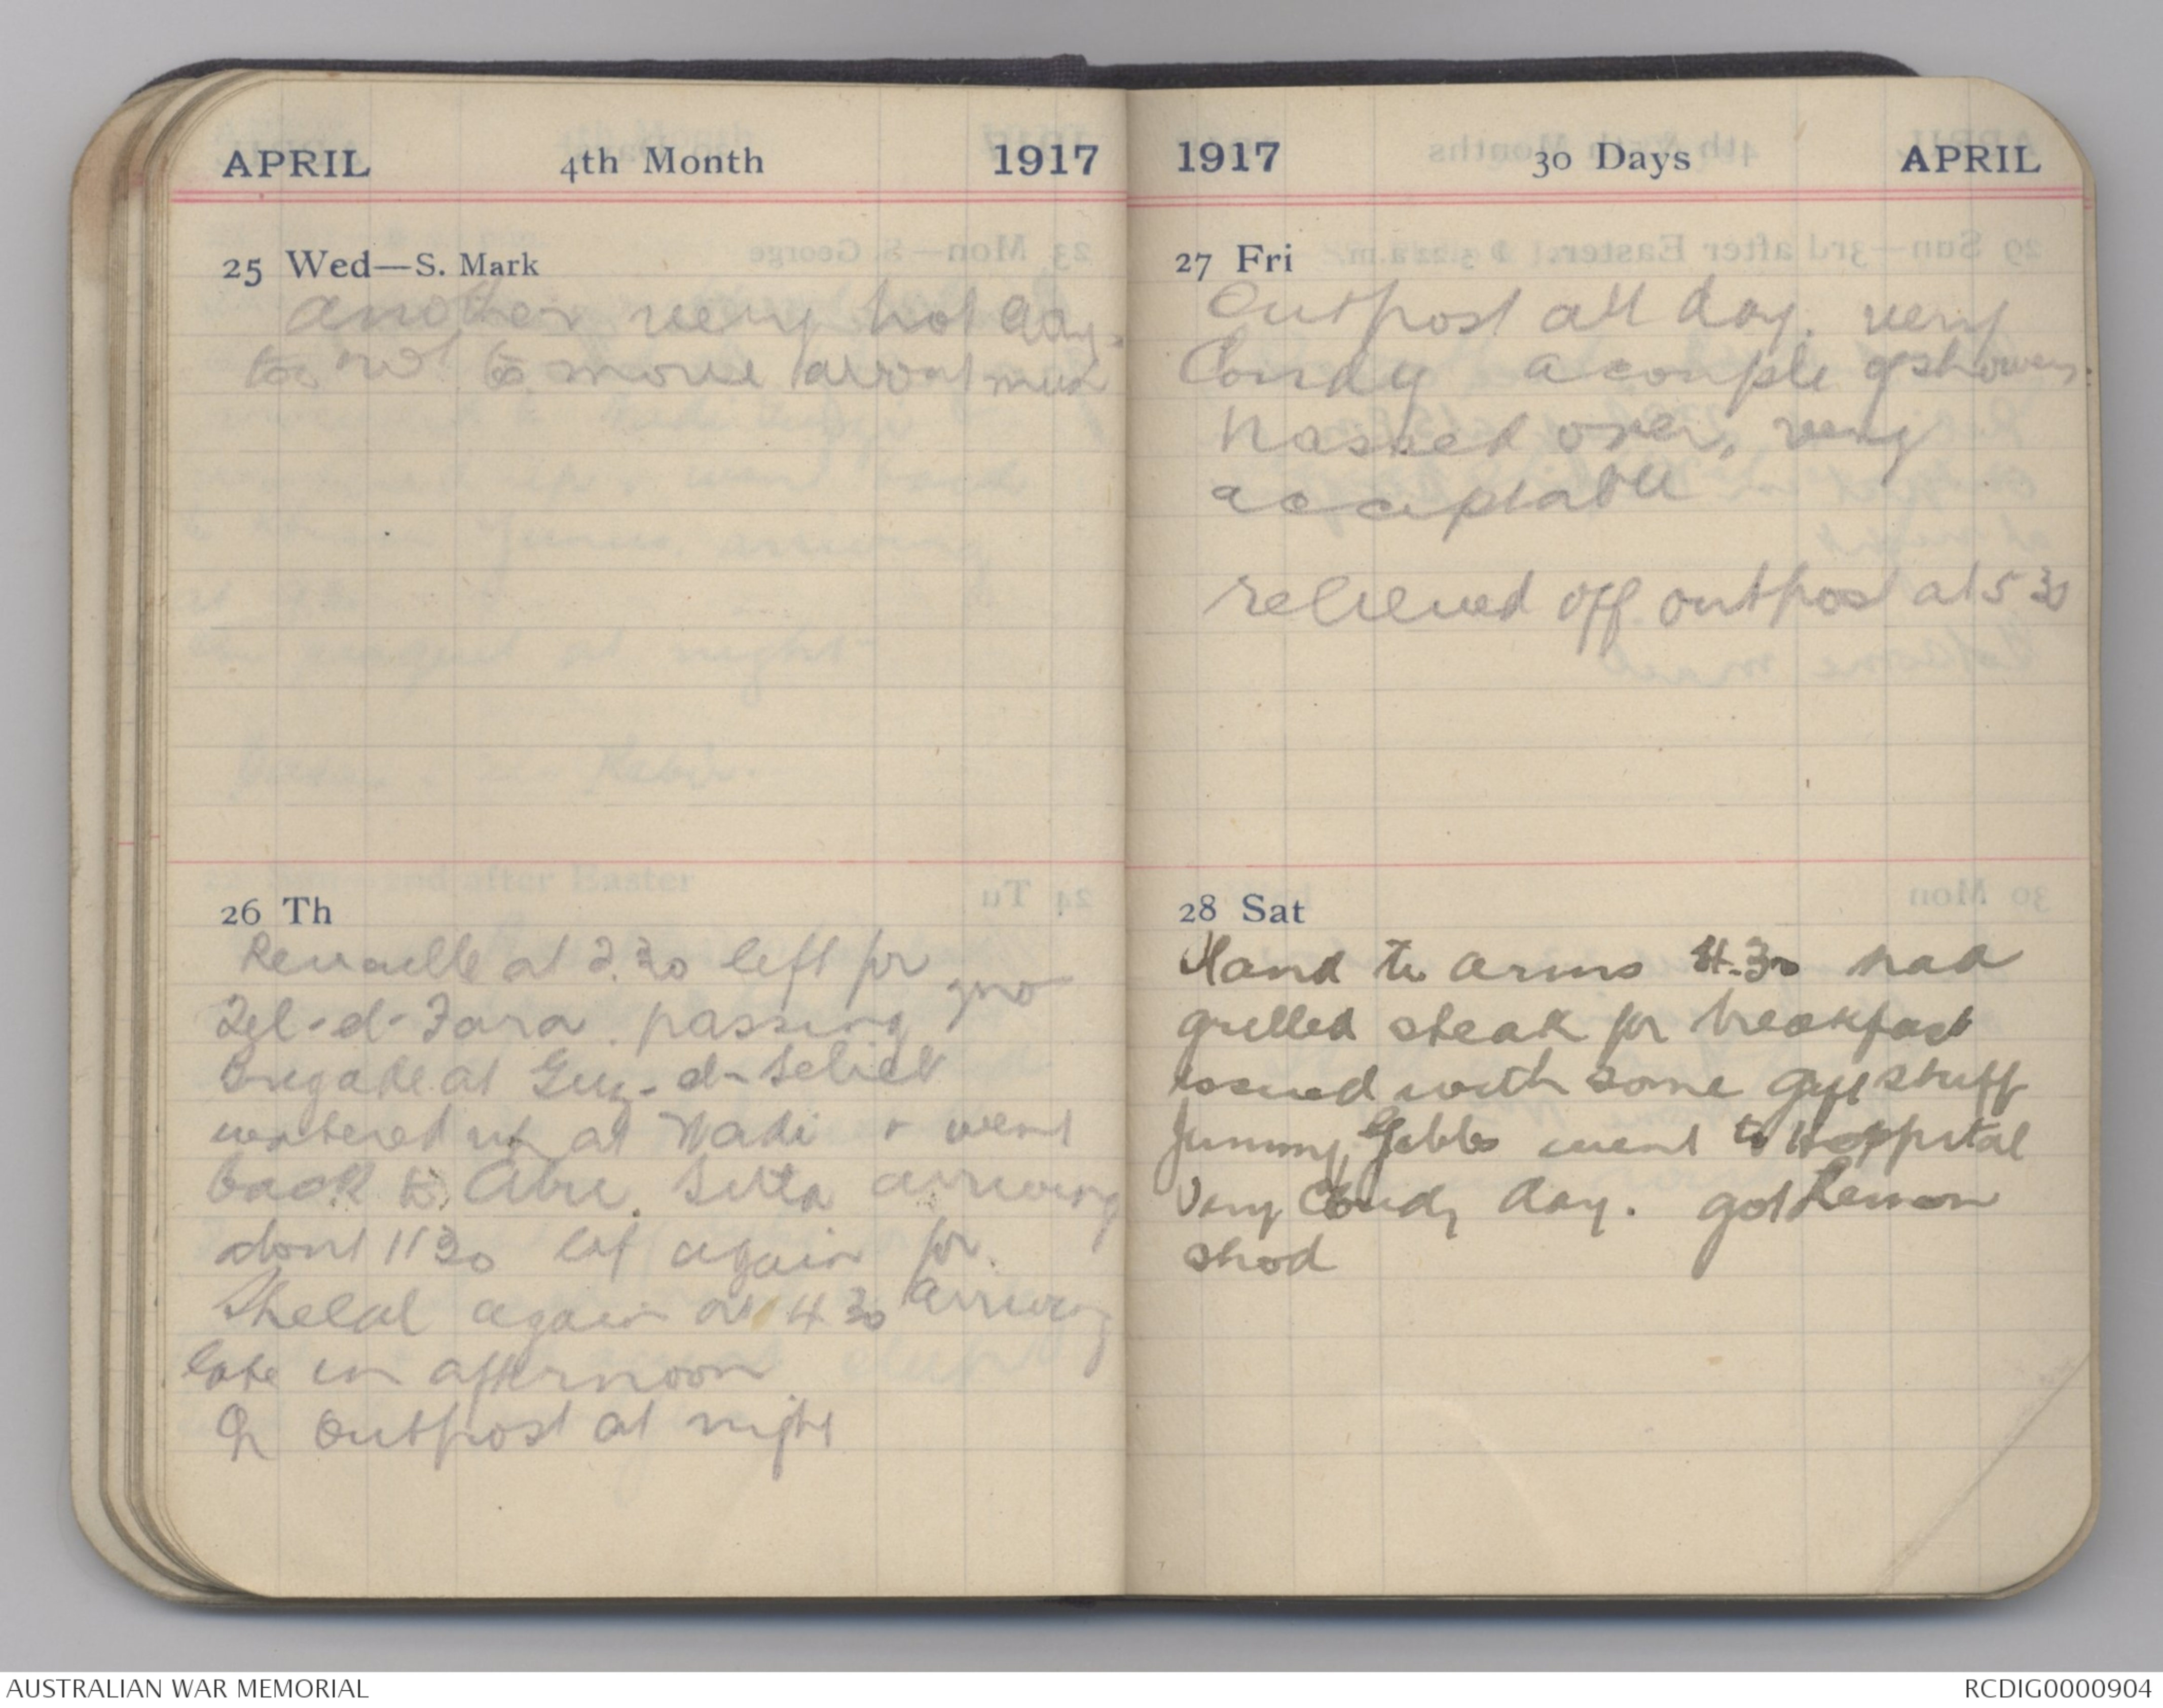 APRIL 4th Month 1917
25 Wed—S. Mark
another very hot day.
too hot to move about much
26 Th
Revaille at 2.30 left for
Tel-d-Fara. passing 
Brigade at Guz-d-Gelieb
watered up at Wadi & went
back to Abu. Sitta arriving
about 11 30 lef again for
Shelal again at 4 30 arriving
late in afternoon
On Outpost at night
1917 30 Days APRIL
27 Fri
Outpost all day. very
Cloudy a couple of showers.
passed over, very
acceptable
relieved off outpost at 5 30
28 Sat
Stand to arms 4.30 had
grilled steak for breakfast
issued with some
Jimmy Gibbs went to Hospital
Very Cloudy day. got
shod
AUSTRALIAN WAR MEMORIAL
RCDIG0000904